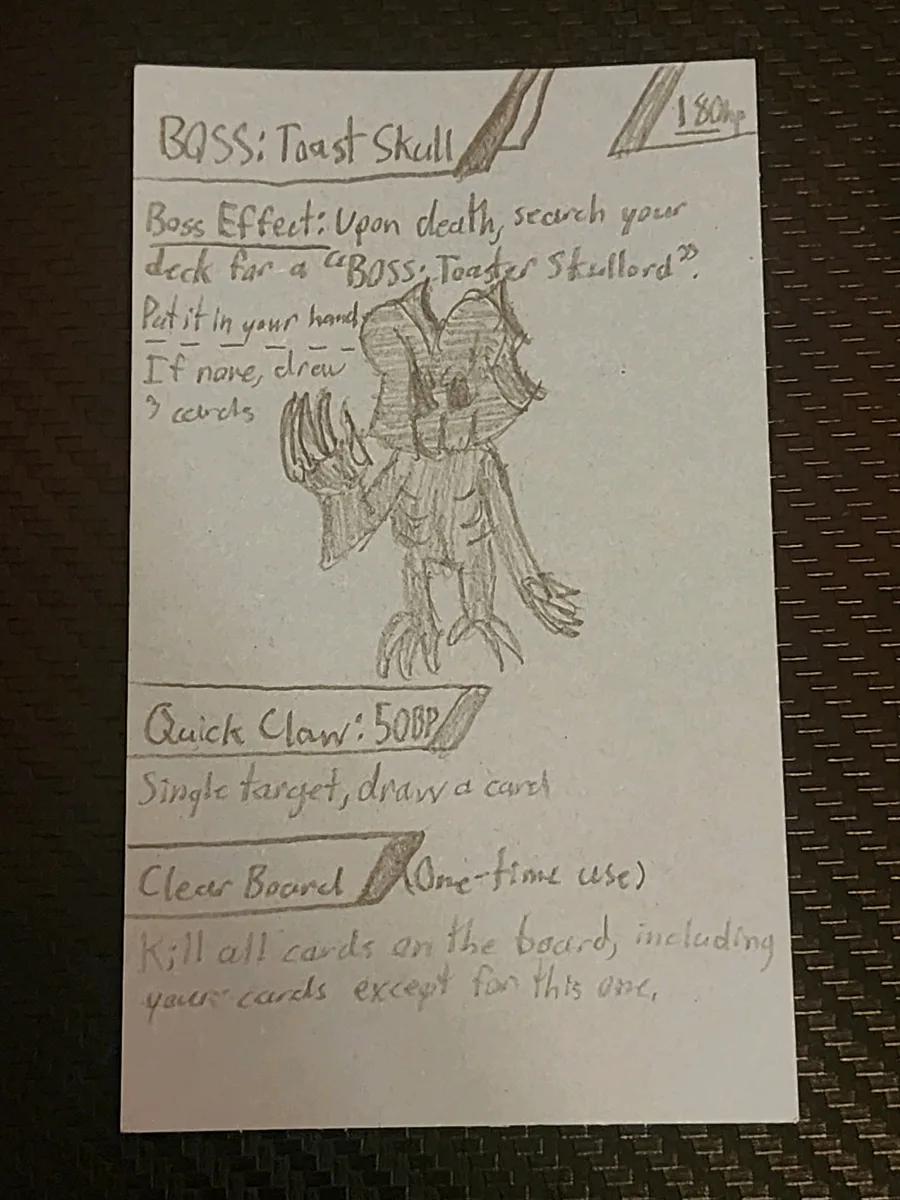 BOSS: Toast Skull
180hp
Boss Effect: Upon death, search your
deck for a "BOSS: Toaster Skullord".
Put it in your hand,
If none, draw
3 cards
Quick Claw: 50BP
Single target, draw a card
Clear Board (One-time use)
Kill all cards on the board, including
your cards except for this one.